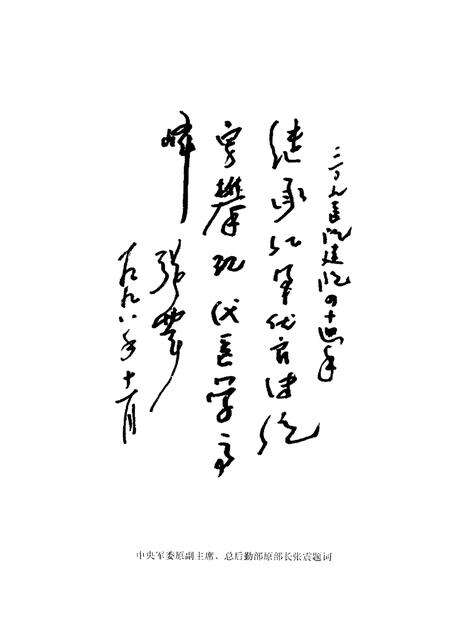 医院建院四十周年
继承红军优良传统
勇攀现代医学高
峰 张震
一九九八年十一月
中央军委原副主席、总后勤部原部长张震题词